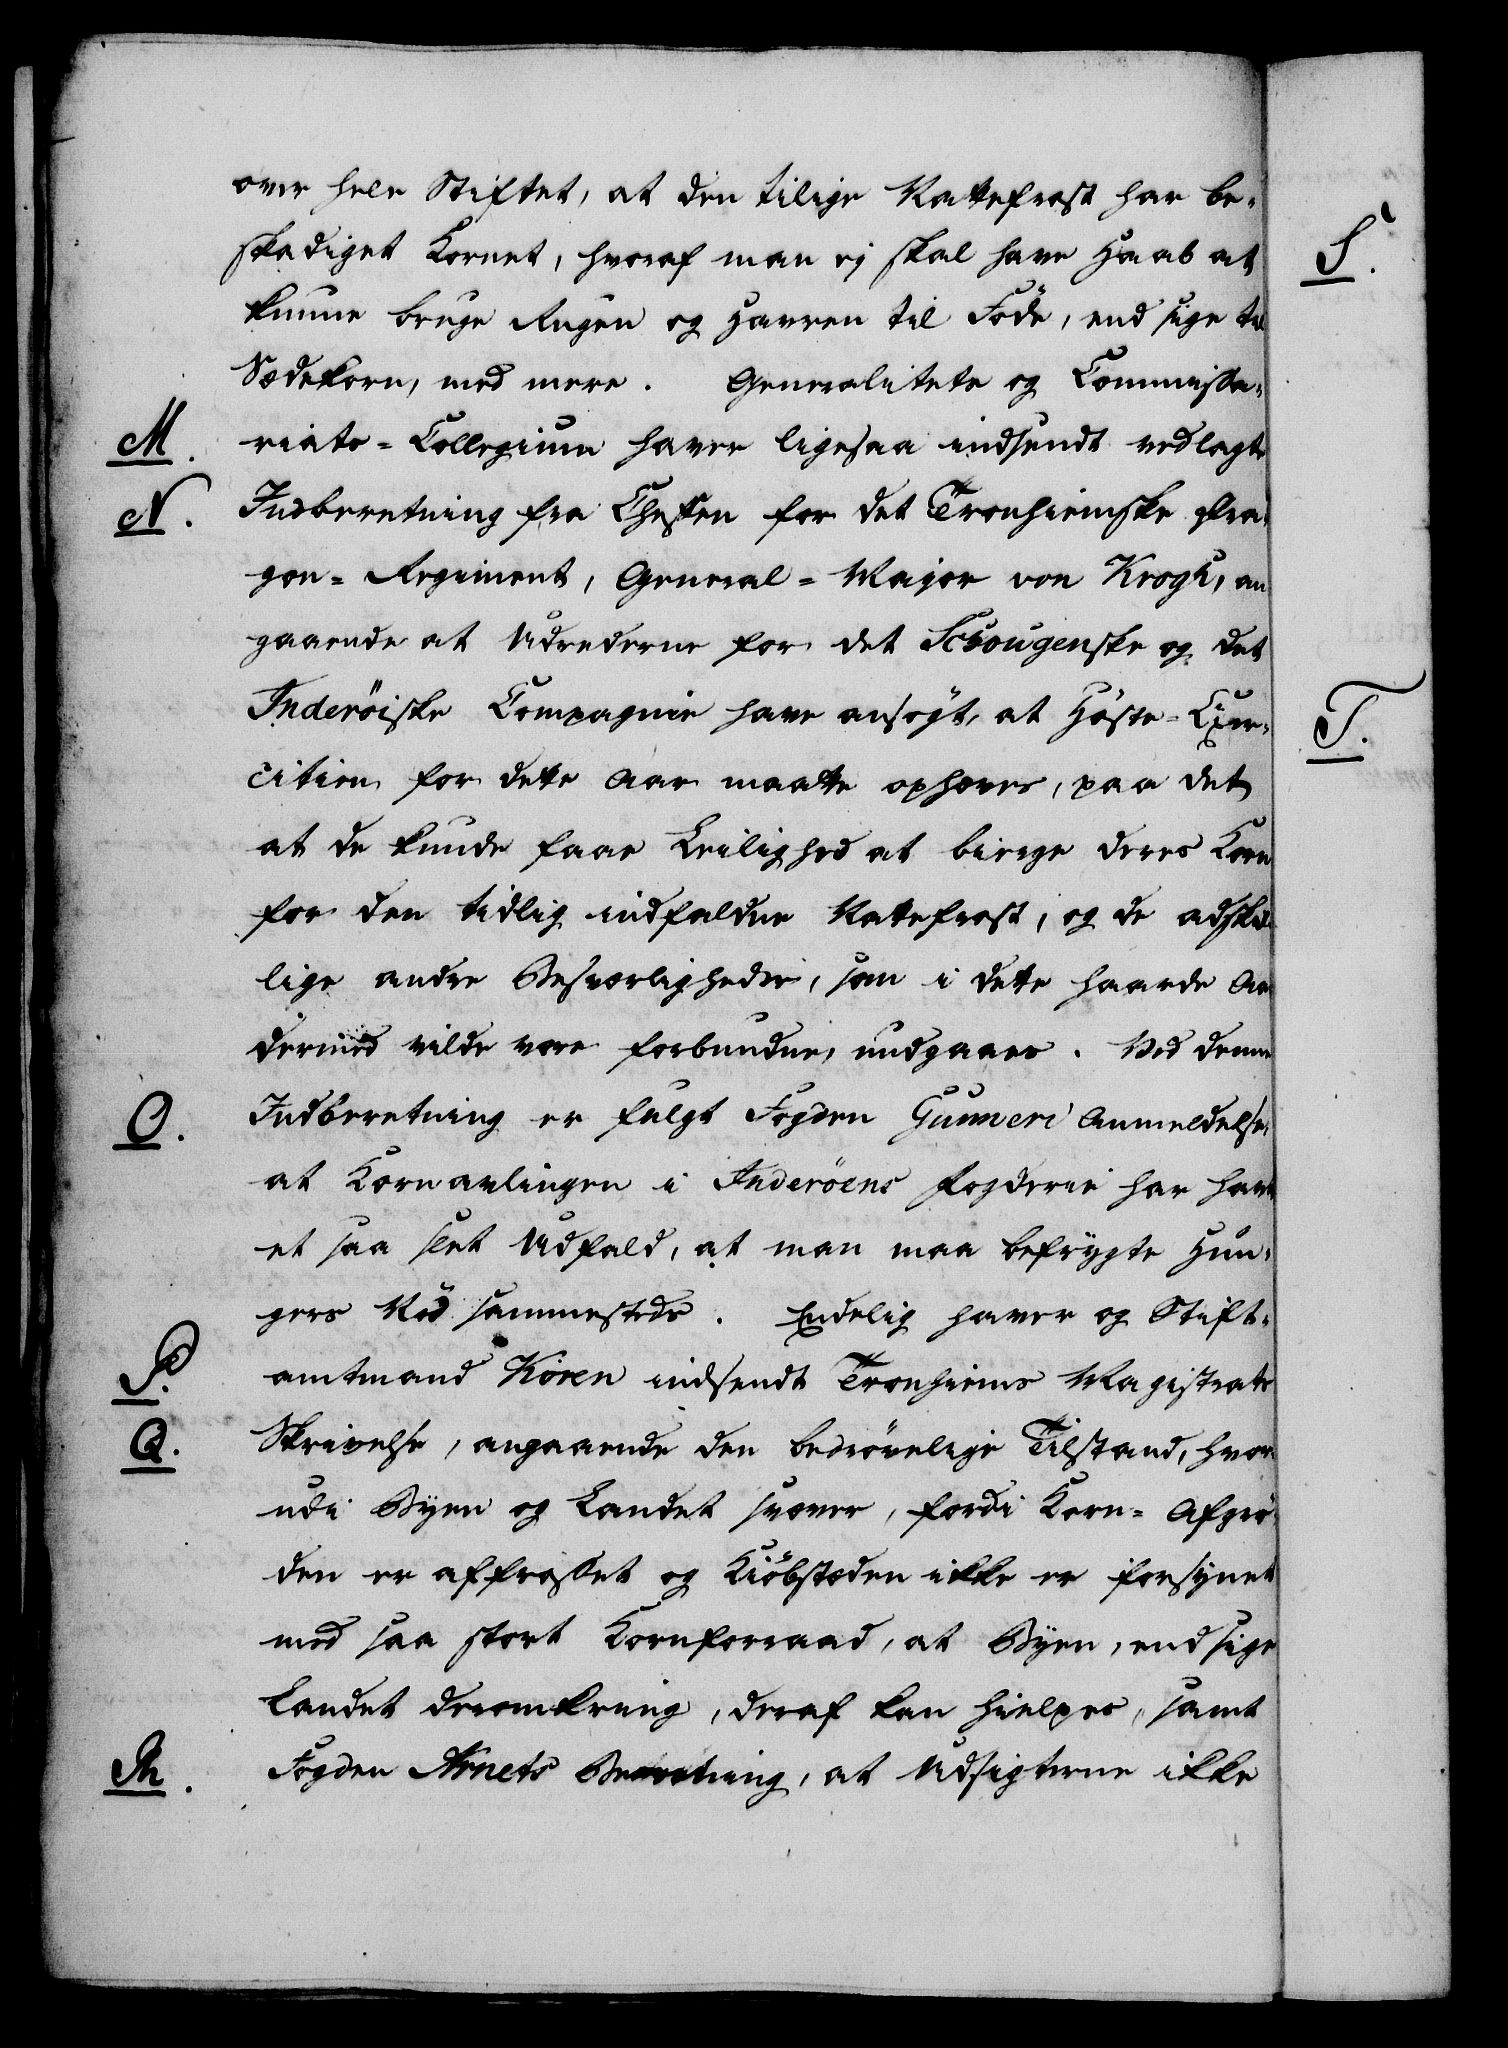 over hele Stiftet, at den tilige Nattefrost har be-
skadiget Kornet, hvoraf man ej skal have Haab at
kunne bruge Rugen og Havren til Føde, end sige til
Sædekorn, med mere. Generalitets og Commissa-
M. riats-Collegium haver ligesaa indsendt vedlagte
N. Indberetning fra Cheffen for det Tronhiemske Dra-
gon-Regiment, General-Major von Krogh, an
gaaende at Udrederne for det Schougenske og det
Inderöiske Compagnie have ansøgt, at Høste-Exer-
citien for dette Aar maatte ophæves, paa det
at de kunde faae Leilighed at bierge deres Korn
for den tidlig indfaldne Nattefrost, og de adskil-
lige andre Besværligheder, som i dette haarde Aar
dermed vilde være forbundne, undgaaes. Ved denne
O. Indberetning er fulgt Fogden Gunneri Anmeldelse,
at Kornavlingen i Inderöens Fogderie har havt
et saa slet Udfald, at man maa befrygte Hun-
gers Nød sammesteds. Endelig haver og Stift-
P. amtmand Koren indsendt Tronhiems Magistrats
Q. Skrivelse, angaaende den bedrøvelige Tilstand, hvor-
udi Byen og Landet svæver, fordi Korn-Afgrø-
den er affrosset og Kiøbstæden ikke er forsynet
med saa stort Kornforraad, at Byen, end sige
Landet deromkring, deraf kan hielpes, samt
R. Fogden Arnets Beretning, at Udsigterne ikke
S.
T.